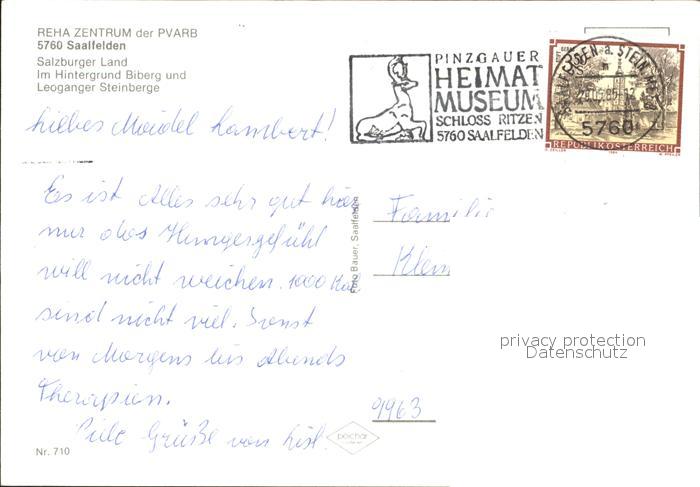 REHA ZENTRUM der PVARB
5760 Saalfelden
Salzburger Land
Im Hintergrund Biberg und
Leoganger Steinberge
PINZGAUER
HEIMAT
MUSEUM
SCHLOSS RITZEN
5760 SAALFELDEN
5760
REPUBLIK ÖSTERREICH
liebes Maidel Lambert!
Es ist Alles sehr gut hier
nur das Hungergefühl
will nicht weichen. 1000 Kal
sind nicht viel. Sonst
von Morgens bis Abends
Therapien.
Viele Grüße von
Foto Bauer, Saalfelden
Familie
Klem
9963
privacy protection
Datenschutz
Nr. 710